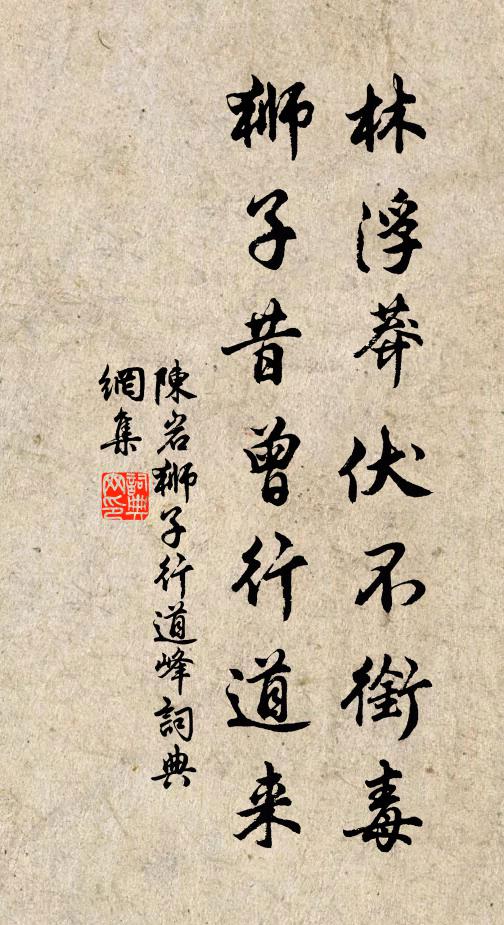 林浮莽伏不銜毒
狮子昔曾行道来
陳岩狮子行道峰詞典
網集
詞典